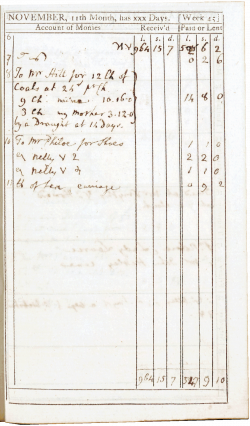 NOVEMBER, 11th Month, has XXX Days. Week 45
Account of Monies Receiv'd Paid or Lent
l. s. d. l. s. d.
6
964 15 7 6 2
7 0 2 6
8 To Mr Hill for 12 Ch of
Coals at 24 pr Ch
9 Ch mine 10.16.0 14 8 0
3 Ch my mother 3.12.0
by a Draught at 14 Days.
10 To Mr for Shoes 1 1 0
2 2 0
1 1 0
11 of Tea carriage 0 9 2
964 15 7 9 10